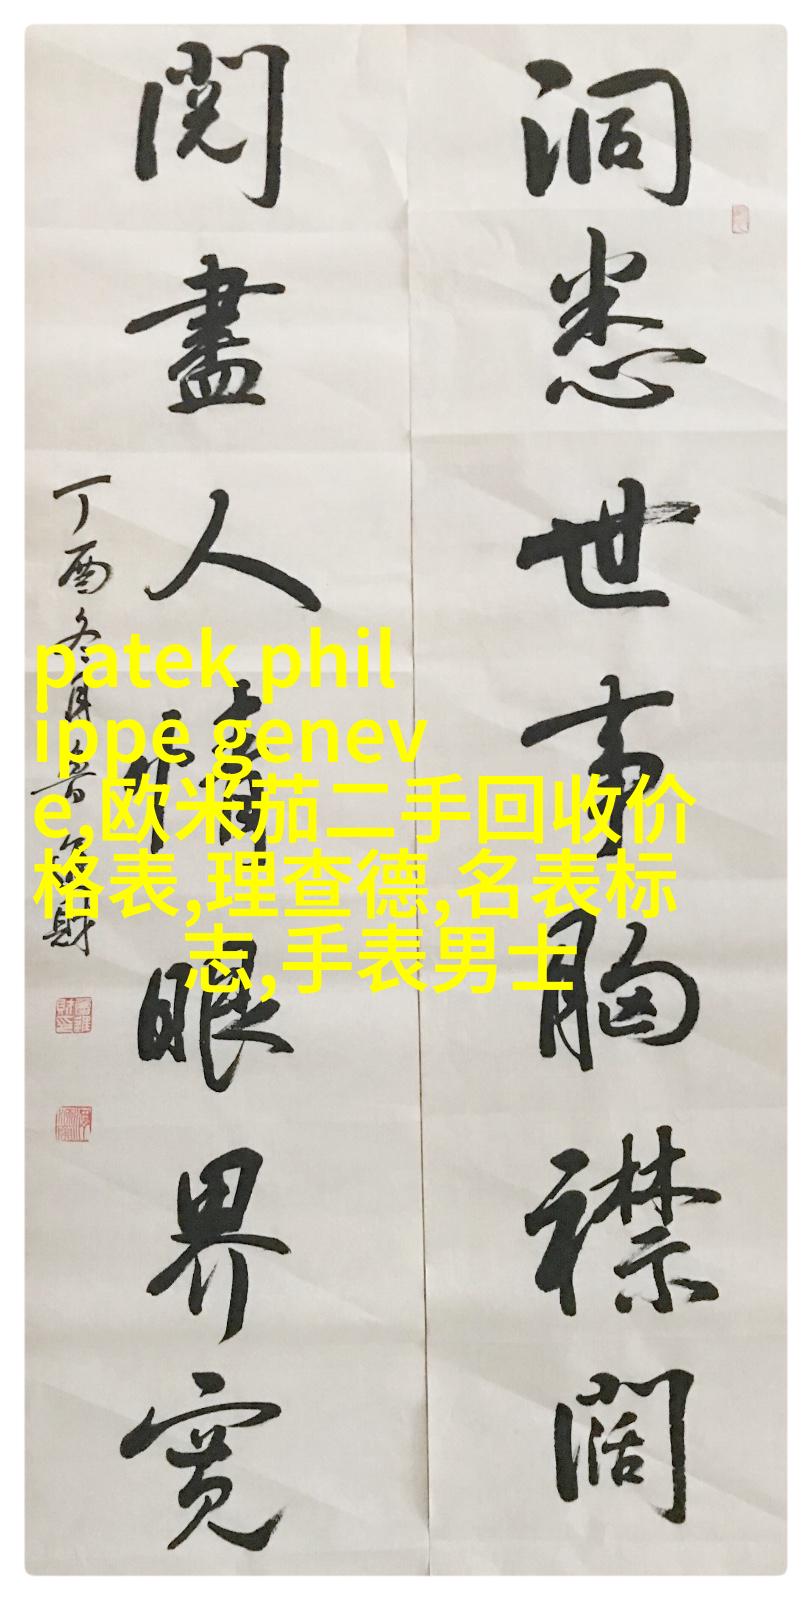 洞悉世事胸襟闊
閱盡人情眼界寬
丁酉冬月書
patek phil
ippe genev
e,欧米茄二手回收价
格表,理查德,名表标
志,手表男士